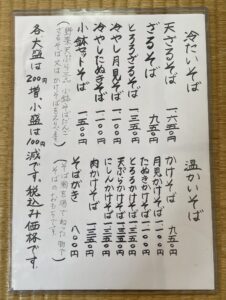 冷たいそば
天ざるそば 一六五〇
ざるそば 九五〇
とろろざるそば 一三五〇
冷やし月見そば 一一〇〇
冷やしたぬきそば 一一〇〇
小鉢セットそば 一五〇〇
温かいそば
かけそば 九五〇
月見かけそば 一一〇〇
たぬきかけそば 一一〇〇
とろろかけそば 一三五〇
天ぷらかけそば 一三五〇
にしんかけそば 一三五〇
肉かけそば 一三五〇
そばがき 八〇〇
各大盛は200円増、小盛は100円減です。税込み価格です。